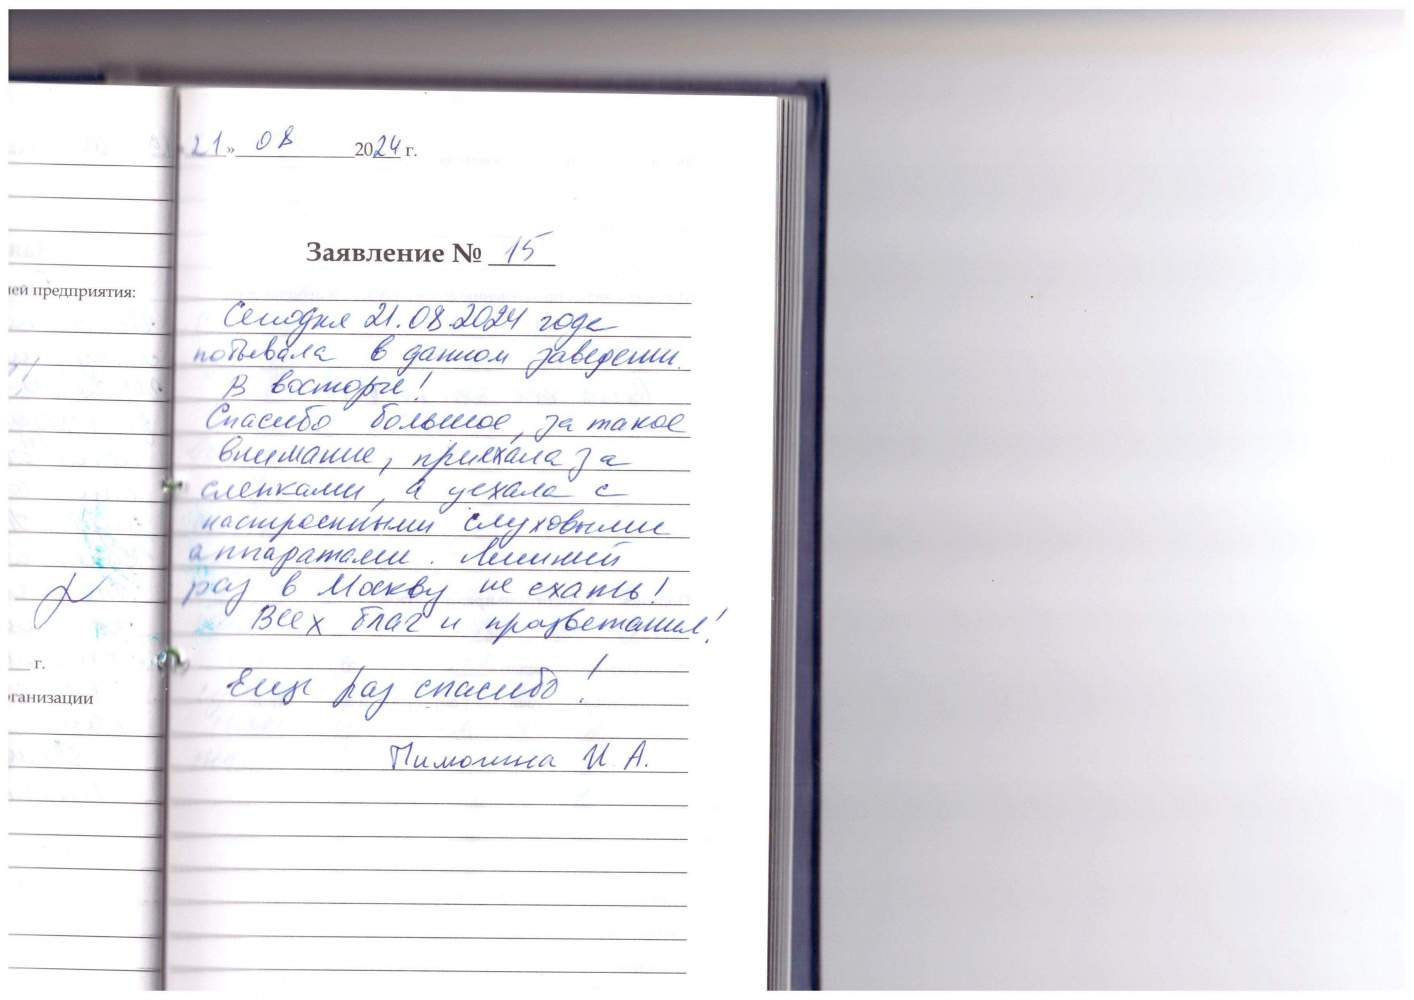 21» 08 2024 г.
Заявление № 15
ей предприятия:
Сегодня 21.08.2024 года
побывала в данном заведении.
В восторге!
Спасибо большое, за такое
внимание, приехала за
слепками, а уехала с
настроенными слуховыми
аппаратами. Лишний
раз в Москву не ехать!
Всех благ и процветания!
г.
Еще раз спасибо!
рганизации
И. А.